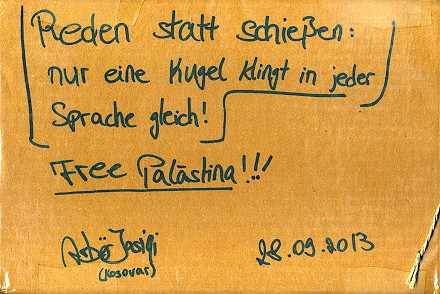 Reden statt schießen:
nur eine Kugel klingt in jeder
Sprache gleich!
Free Palästina!!!
(Kosovar)
28.09.2013